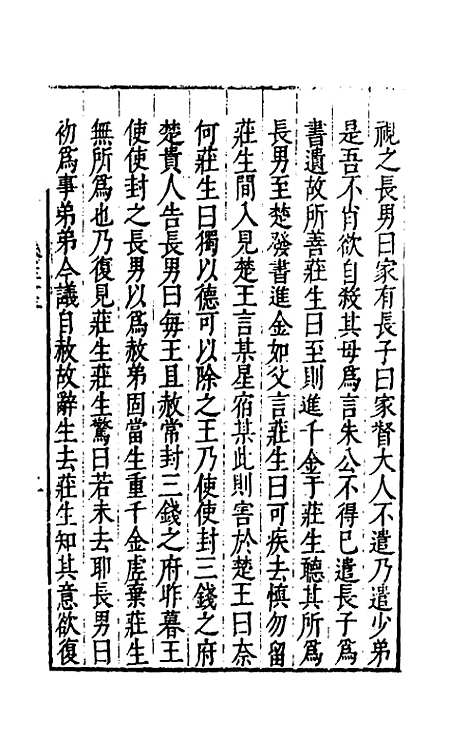 視之長男曰家有長子曰家督大人不遣乃遣少弟
是吾不肖欲自殺其母爲言朱公不得已遣長子爲
書遺故所善莊生曰至則進千金于莊生聽其所爲
長男至楚發書進金如父言莊生曰可疾去慎勿留
莊生間入見楚王言某星宿某此則害於楚王曰奈
何莊生曰獨以德可以除之王乃使使封三錢之府
楚貴人告長男曰毎王且赦常封三錢之府昨暮王
使使封之長男以爲赦弟固當生重千金虗棄莊生
無所爲也乃復見莊生莊生驚曰若未去耶長男曰
初爲事弟弟今議自赦故辭生去莊生知其意欲復